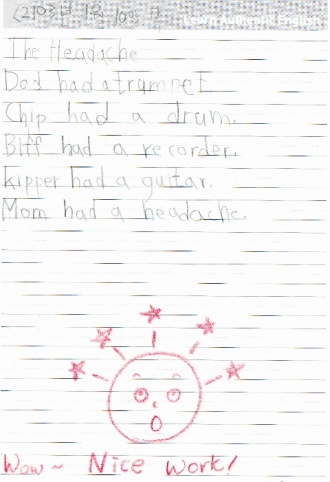 Learn Authentic English
The Headache
Dad had a trumpet
Chip had a drum.
Biff had a recorder.
Kipper had a guitar.
Mom had a headache.
Wow~ Nice work!